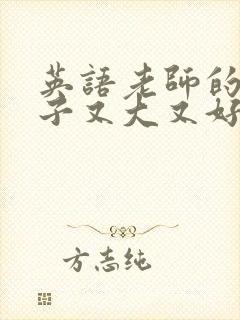 英語老師的
子又大又好
方志纯